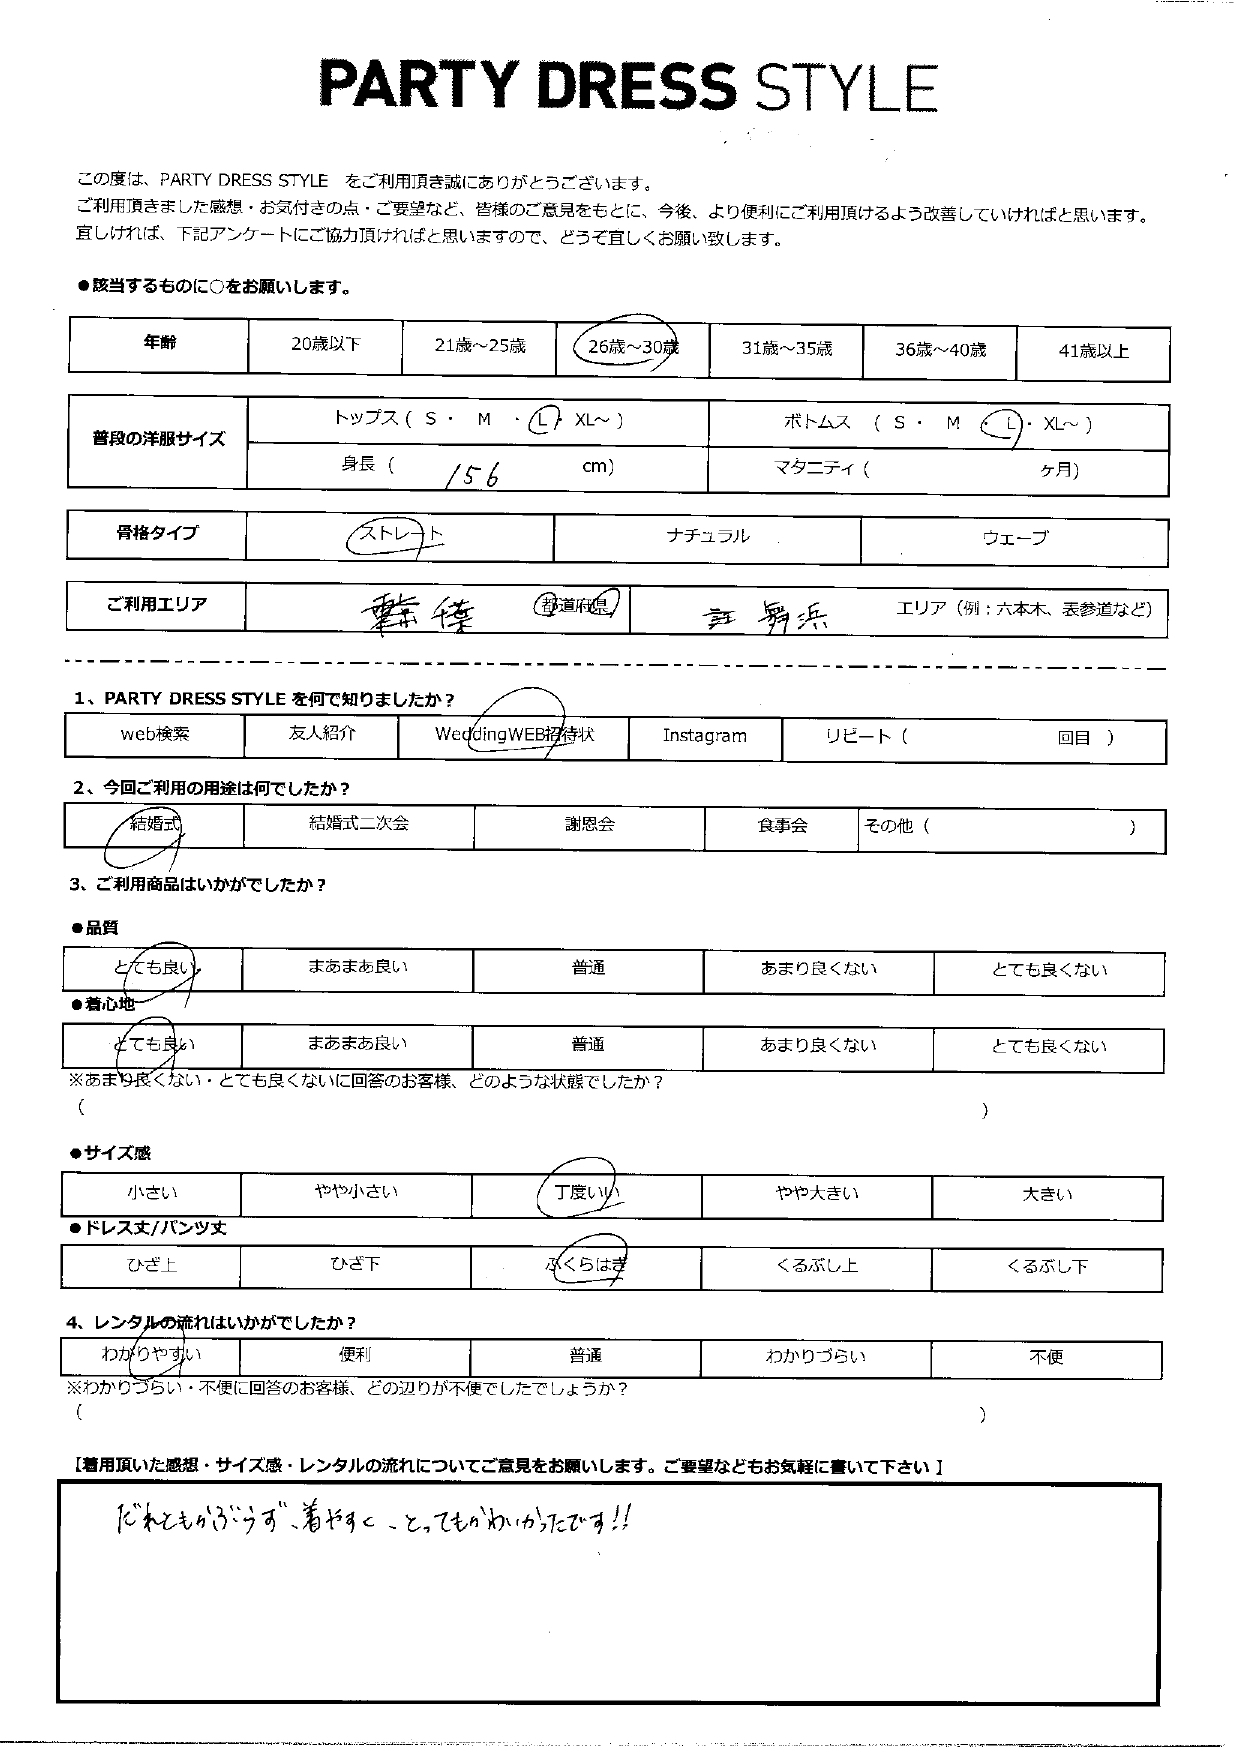 PARTY DRESS STYLE
この度は、PARTY DRESS STYLE をご利用頂き誠にありがとうございます。
ご利用頂きました感想・お気付きの点・ご要望など、皆様のご意見をもとに、今後、より便利にご利用頂けるよう改善していければと思います。
宜しければ、下記アンケートにご協力頂ければと思いますので、どうぞ宜しくお願い致します。
●該当するものに○をお願いします。
年齢 20歳以下 21歳～25歳 26歳～30歳 31歳～35歳 36歳～40歳 41歳以上
普段の洋服サイズ
トップス ( S ・ M ・ L ・ XL～ ) ボトムス ( S ・ M ・ L ・ XL～ )
身長 ( 156 cm) マタニティ ( ヶ月)
骨格タイプ ストレート ナチュラル ウェーブ
ご利用エリア 千葉 都道府県 舞浜 エリア（例：六本木、表参道など）
1、PARTY DRESS STYLE を何で知りましたか？
web検索 友人紹介 WeddingWEB招待状 Instagram リピート ( 回目 )
2、今回ご利用の用途は何でしたか？
結婚式 結婚式二次会 謝恩会 食事会 その他 ( )
3、ご利用商品はいかがでしたか？
●品質
とても良い まあまあ良い 普通 あまり良くない とても良くない
●着心地
とても良い まあまあ良い 普通 あまり良くない とても良くない
※あまり良くない・とても良くないに回答のお客様、どのような状態でしたか？
( )
●サイズ感
小さい やや小さい 丁度いい やや大きい 大きい
●ドレス丈/パンツ丈
ひざ上 ひざ下 ふくらはぎ くるぶし上 くるぶし下
4、レンタルの流れはいかがでしたか？
わかりやすい 便利 普通 わかりづらい 不便
※わかりづらい・不便に回答のお客様、どの辺りが不便でしたでしょうか？
( )
【着用頂いた感想・サイズ感・レンタルの流れについてご意見をお願いします。ご要望などもお気軽に書いて下さい 】
だれともかぶらず、着やすく、とってもかわいかったです!!